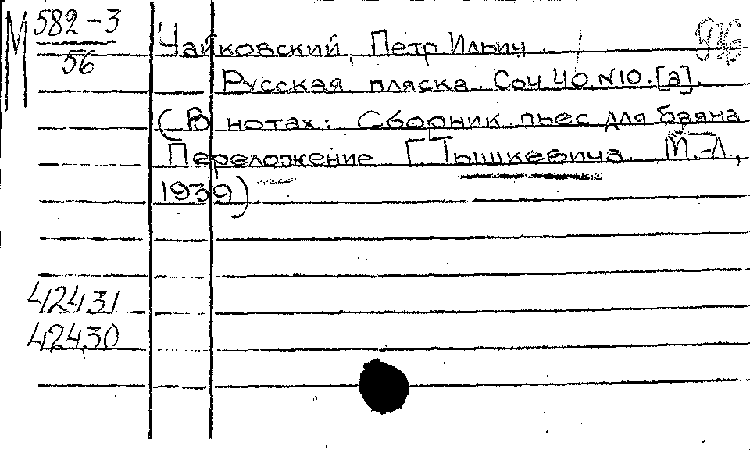 М 582-3
56
Чайковский, Петр Ильич
Русская пляска. Соч. 40. №10. [а].
(В нотах: Сборник пьес для баяна
Переложение Г. Тышкевича М.-Л.,
1939)
42431
42430